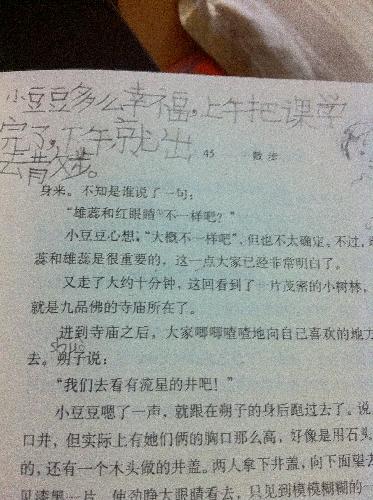 小豆豆多么幸福,上午把课学
完了,下午就出
去散步。
45 散步
身来。不知是谁说了一句：
“雄蕊和红眼睛不一样吧？”
小豆豆心想，“大概不一样吧”，但也不太确定。不过，雌
蕊和雄蕊是很重要的，这一点大家已经非常明白了。
又走了大约十分钟，这回看到了一片茂密的小树林，
就是九品佛的寺庙所在了。
进到寺庙之后，大家唧唧喳喳地向自己喜欢的地方
shuò
去。朔子说：
“我们去看有流星的井吧！”
小豆豆嗯了一声，就跟在朔子的身后跑过去了。说
口井，但实际上有她们俩的胸口那么高，好像是用石头
的，还有一个木头做的井盖。两人拿下井盖，向下面望去
见漆黑一片，使劲睁大眼睛看去，只见到模模糊糊的一